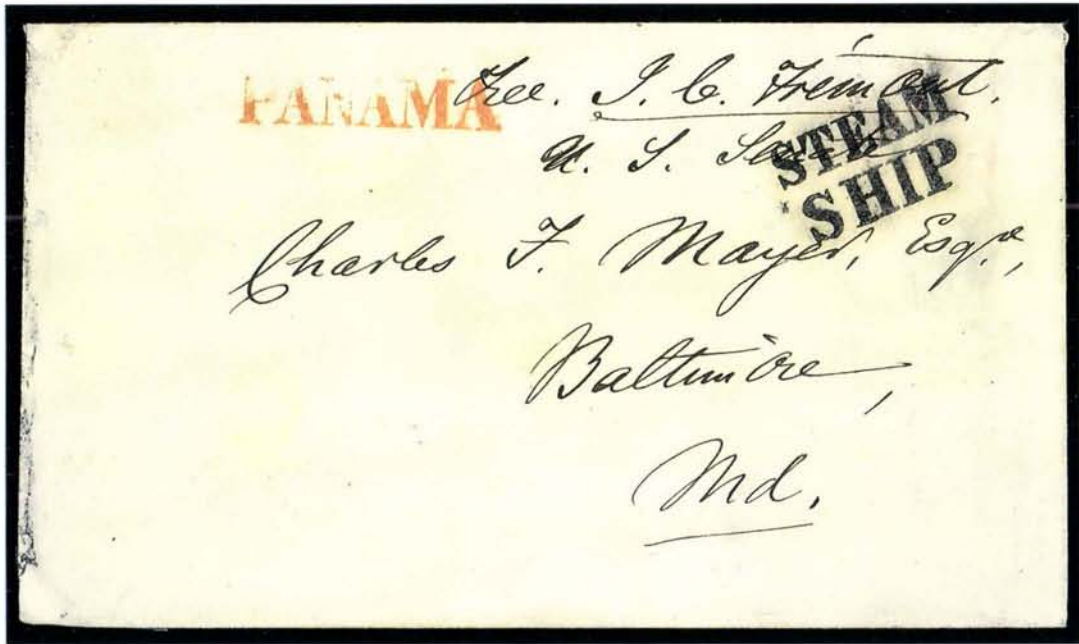 PANAMA
Free. J. C. Fremont,
U. S. S.
STEAM
SHIP
Charles F. Mayer, Esqr,
Baltimore,
Md.